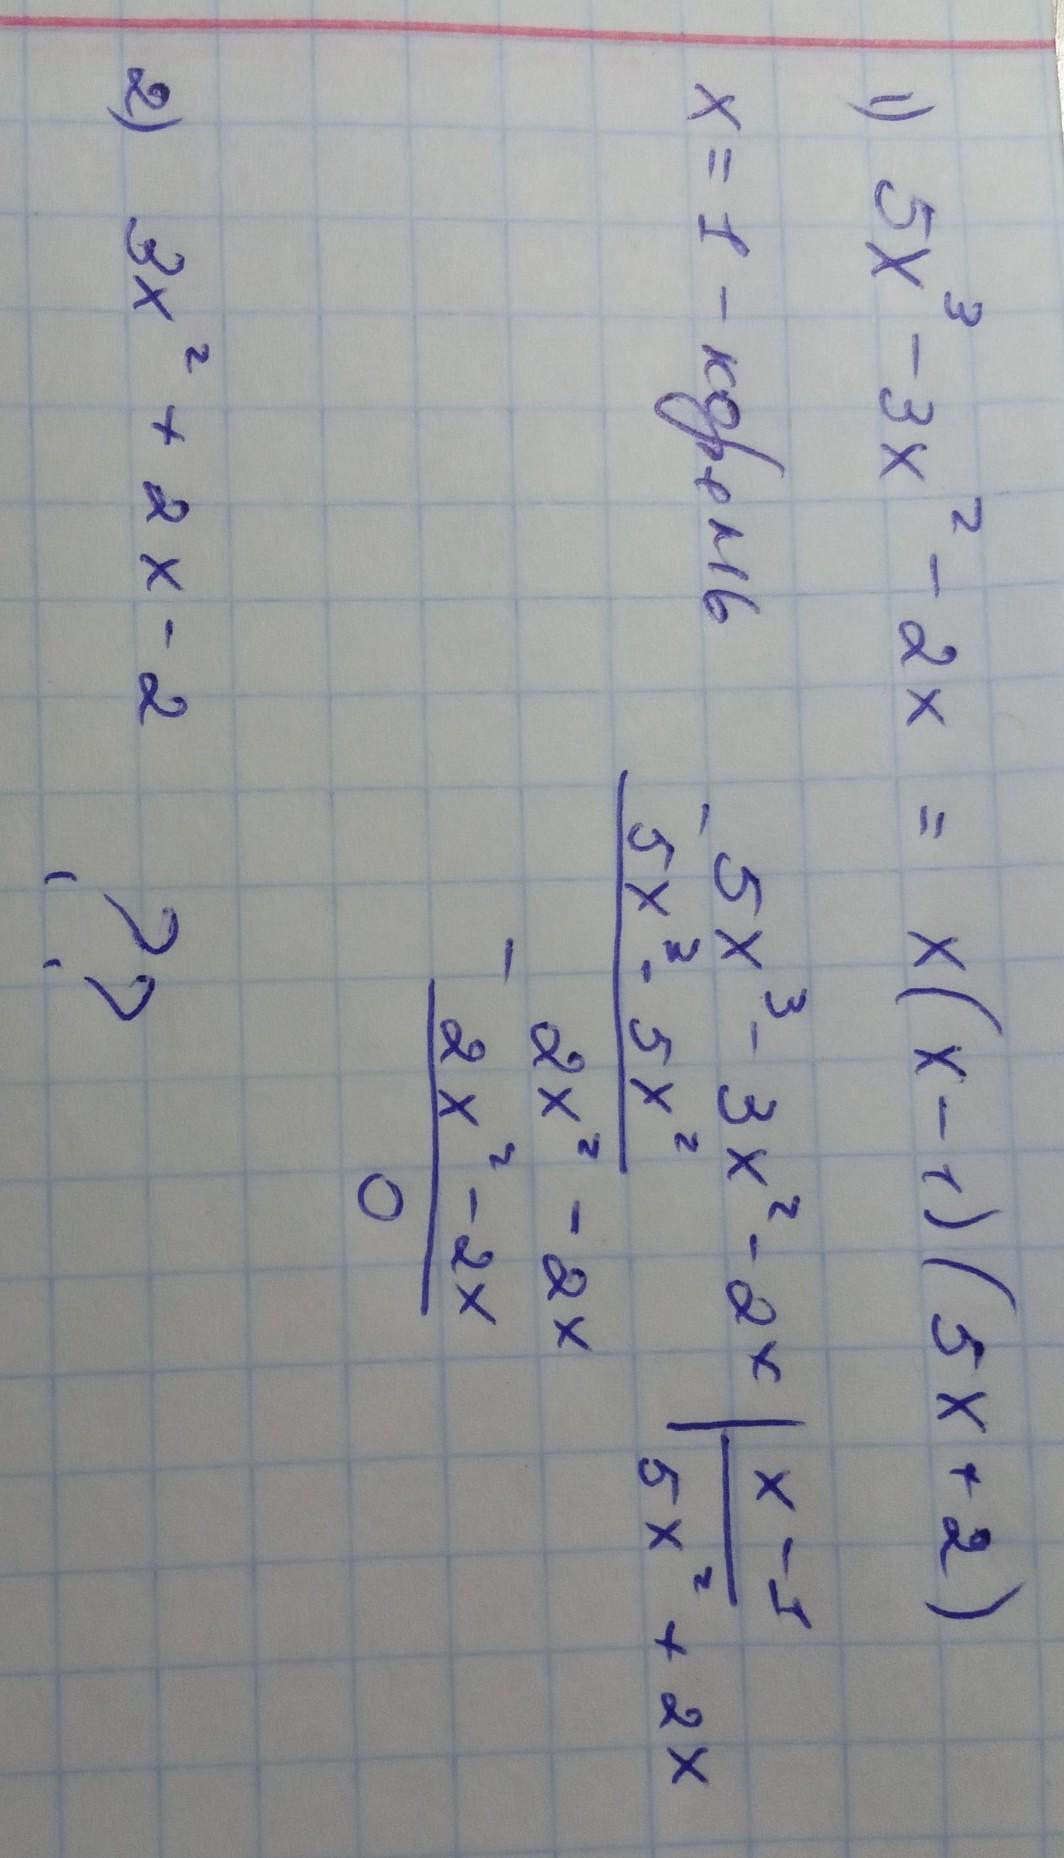 1) 5x³ - 3x² - 2x = x(x-1)(5x+2)
x = 1 - корень
- 5x³ - 3x² - 2x | x - 1
5x³ - 5x² | 5x² + 2x
- 2x² - 2x
2x² - 2x
0
2) 3x² + 2x - 2 ??